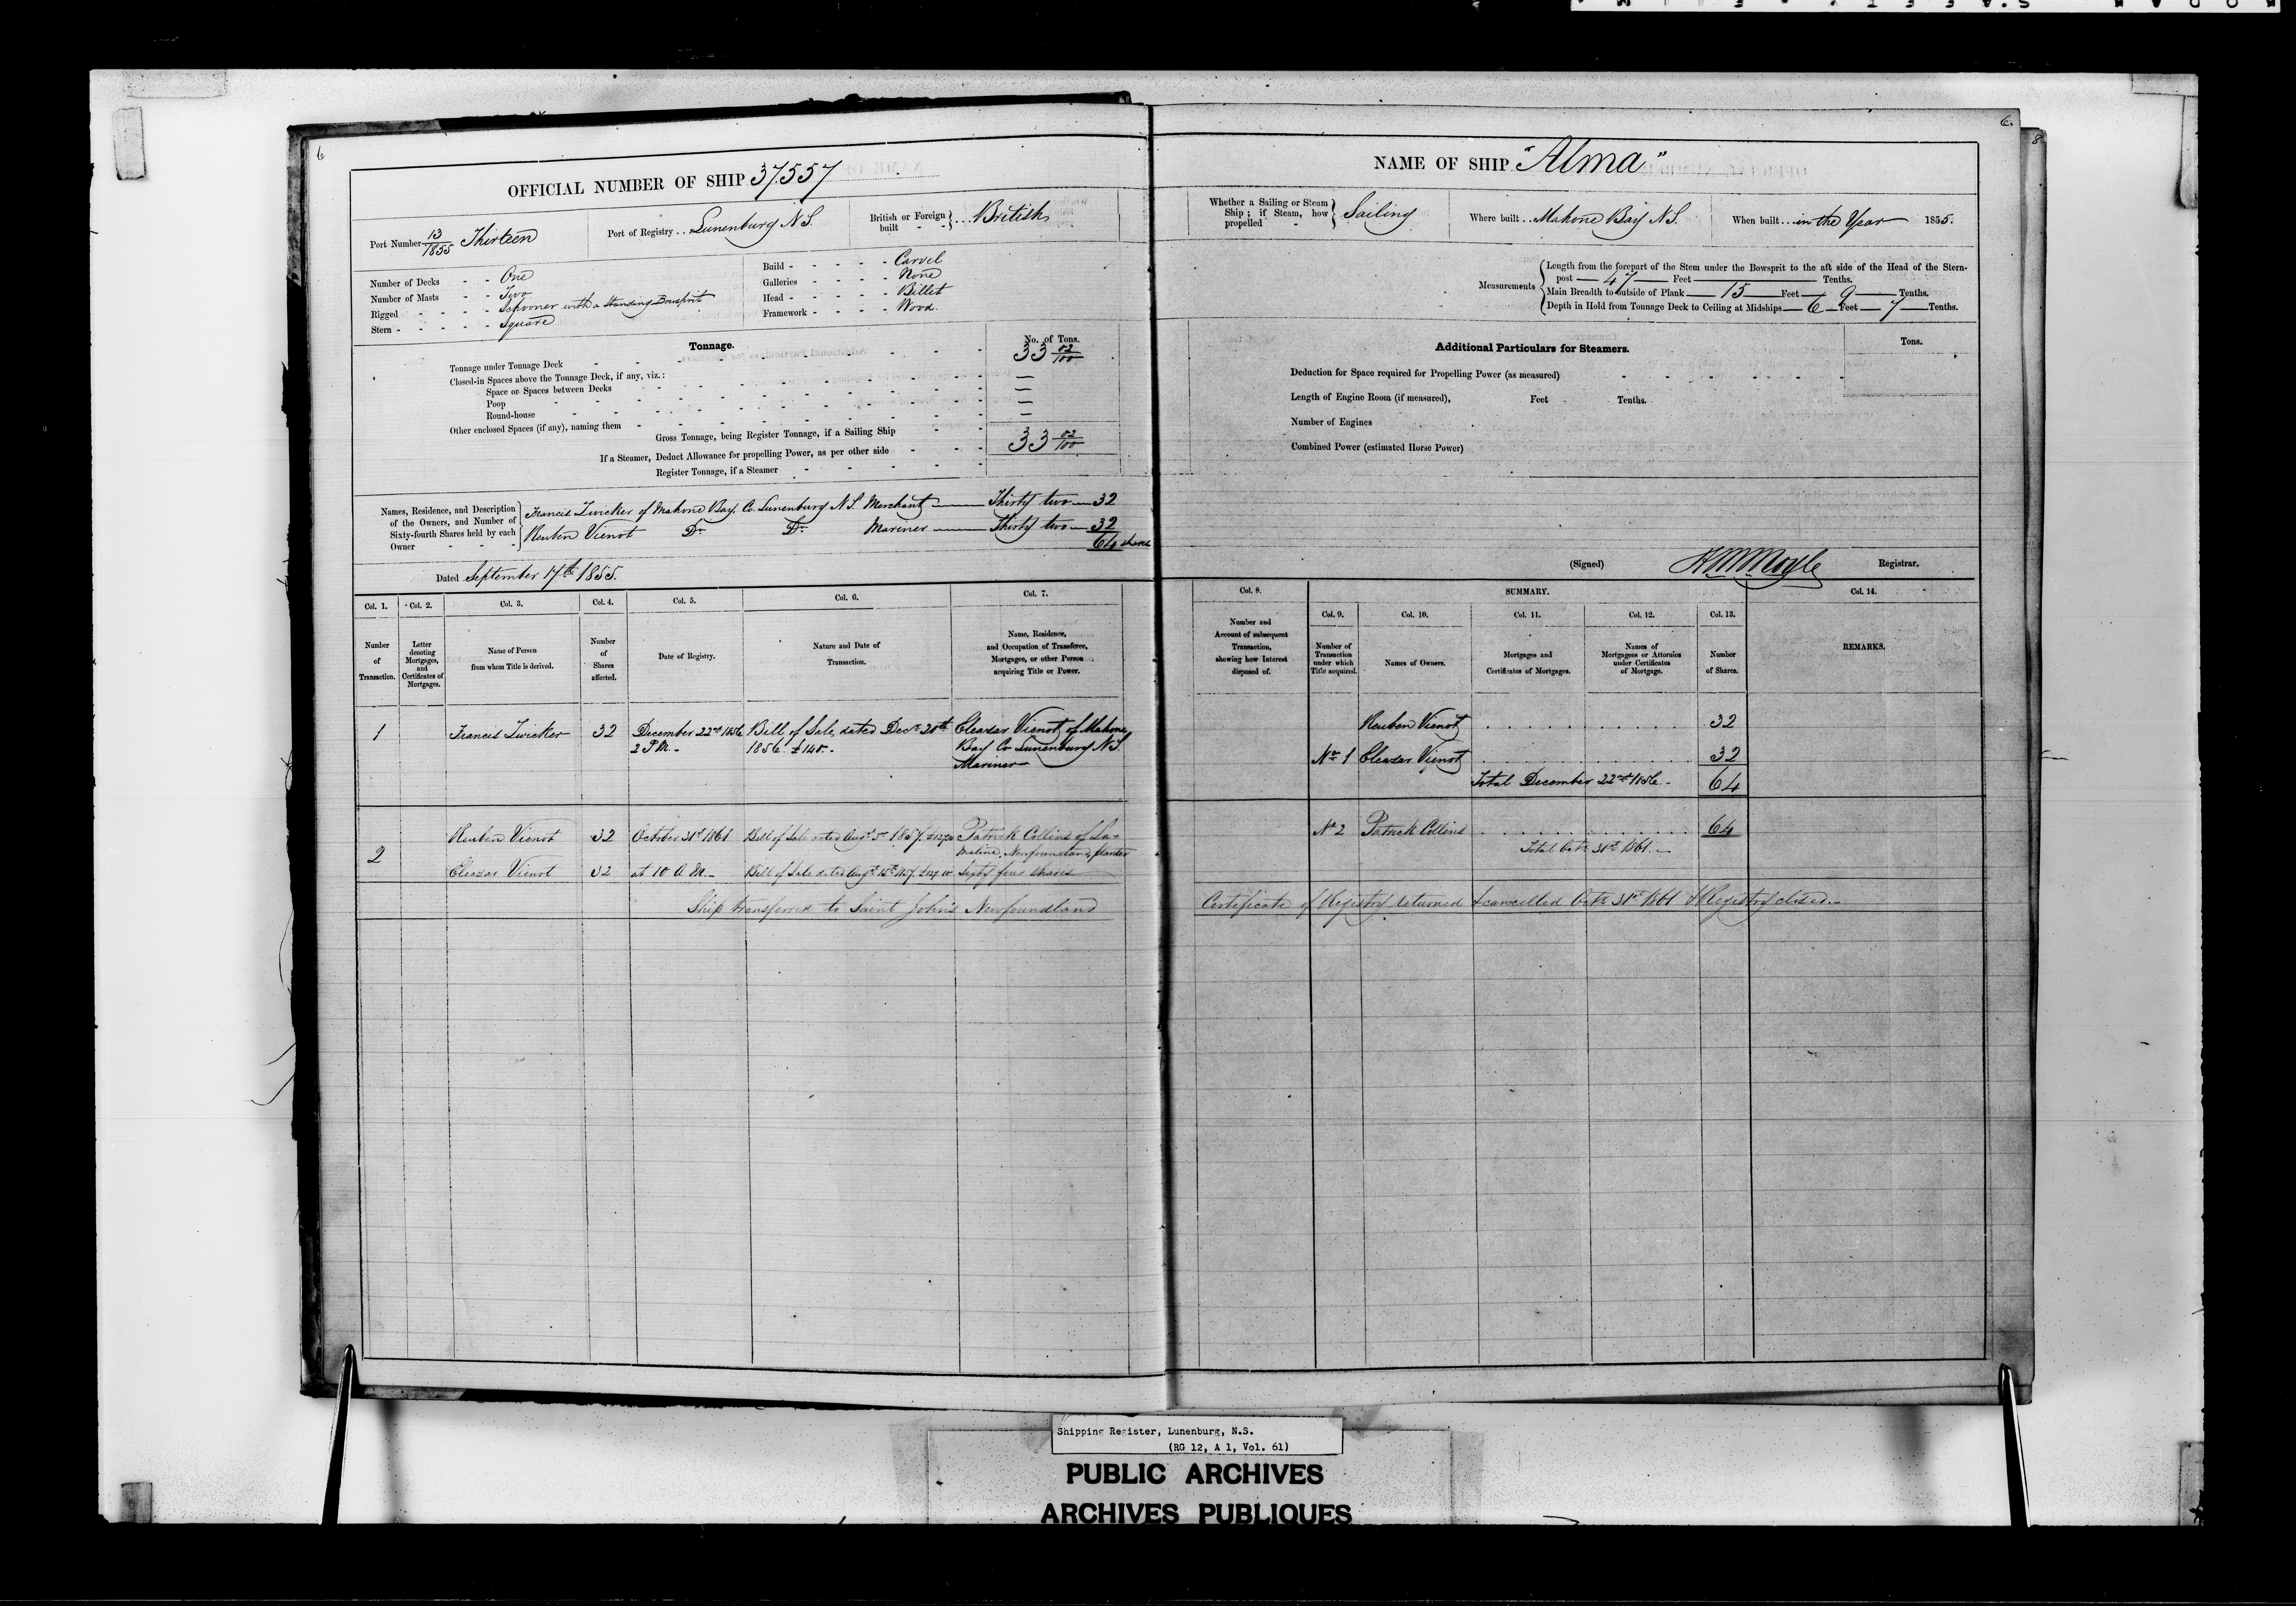 6
OFFICIAL NUMBER OF SHIP 37557
Port Number 13/1855 Thirteen
Port of Registry .. Lunenburg N S.
British or Foreign built - - } ... British
Number of Decks - - One
Number of Masts - - Two
Rigged - - - - Schooner with a Standing Bowsprit
Stern - - - - - Square
Build - - - - - Carvel
Galleries - - - - None
Head - - - - - Billet
Framework - - - - Wood.
Tonnage.
No. of Tons.
Tonnage under Tonnage Deck 33 02/100
Closed-in Spaces above the Tonnage Deck, if any, viz.:
Space or Spaces between Decks —
Poop —
Round-house —
Other enclosed Spaces (if any), naming them —
Gross Tonnage, being Register Tonnage, if a Sailing Ship 33 02/100
If a Steamer, Deduct Allowance for propelling Power, as per other side
Register Tonnage, if a Steamer
Names, Residence, and Description of the Owners, and Number of Sixty-fourth Shares held by each Owner - - -
Francis Zwicker of Mahone Bay. Co. Lunenburg N S. Merchant — Thirty two — 32
Reuben Vienot Do Do Mariner — Thirty two — 32
64 shares
Dated September 17th 1855.
Col. 1. Col. 2. Col. 3. Col. 4. Col. 5. Col. 6. Col. 7.
Number of Transaction.
Letter denoting Mortgages, and Certificates of Mortgages.
Name of Person from whom Title is derived.
Number of Shares affected.
Date of Registry.
Nature and Date of Transaction.
Name, Residence, and Occupation of Transferee, Mortgagee, or other Person acquiring Title or Power.
1 Francis Zwicker 32 December 22nd 1856 Bill of Sale, dated Decr 20th Eleazar Vienot of Mahone
2 P.M. - 1856. £140.- Bay Co Lunenburg N S
Mariner
2
Reuben Vienot 32 October 31st 1861 Bill of Sale dated Augt 5th 1857. Patrick Collins of La-
maline, Newfoundland, planter
Eleazar Vienot 32 at 10 A M. - Bill of Sale dated Augt 15th 1857. Sixty four shares
Ship transferred to Saint John's Newfoundland
6.
8
NAME OF SHIP "Alma"
Whether a Sailing or Steam Ship; if Steam, how propelled - } Sailing
Where built .. Mahone Bay N S.
When built ... in the Year 1855.
Measurements
Length from the forepart of the Stem under the Bowsprit to the aft side of the Head of the Stern-
post — 47 — Feet — Tenths.
Main Breadth to outside of Plank — 15 — Feet — 9 — Tenths.
Depth in Hold from Tonnage Deck to Ceiling at Midships — 6 — Feet — 7 — Tenths.
Additional Particulars for Steamers.
Tons.
Deduction for Space required for Propelling Power (as measured)
Length of Engine Room (if measured), Feet Tenths.
Number of Engines
Combined Power (estimated Horse Power)
(Signed) Registrar.
Col. 8. SUMMARY. Col. 14.
Col. 9. Col. 10. Col. 11. Col. 12. Col. 13.
Number and Account of subsequent Transaction, showing how Interest disposed of.
Number of Transaction under which Title acquired.
Names of Owners.
Mortgages and Certificates of Mortgages.
Names of Mortgagees or Attornies under Certificates of Mortgage.
Number of Shares.
REMARKS.
Reuben Vienot 32
No 1 Eleazar Vienot 32
Total December 22nd 1856. - 64
No 2 Patrick Collins 64
Total Octr 31st 1861. -
Certificate of Registry returned & cancelled Octr 31st 1861 & Registry closed. -
Shipping Register, Lunenburg, N.S.
(RG 12, A 1, Vol. 61)
PUBLIC ARCHIVES
ARCHIVES PUBLIQUES